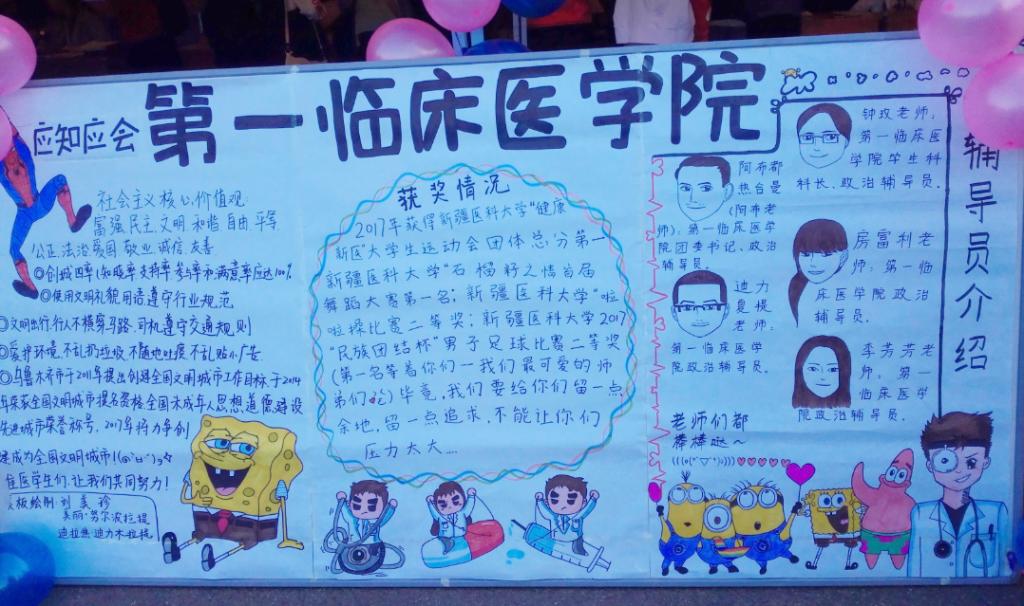 第一临床医学院
应知应会
社会主义核心价值观:
富强 民主 文明 和谐 自由 平等
公正 法治 爱国 敬业 诚信 友善
◎创城四率(知晓率 支持率 参与率 和满意率应达100%
◎使用文明礼貌用语遵守行业规范
◎文明出行,行人不横穿马路,司机遵守交通规则
◎爱护环境,不乱扔垃圾 不随地吐痰 不乱贴小广告
◎乌鲁木齐市于2011年提出创建全国文明城市工作目标,于2014
年荣获全国文明城市提名资格,全国未成年人思想道德建设
先进城市荣誉称号,2017年将力争创
建成为全国文明城市!
医学生们,让我们共同努力!
板绘制:刘美珍
美丽·努尔波拉提
迪拉热·迪力木拉提
获奖情况
2017年获得新疆医科大学"健康
新医"大学生运动会团体总分第一
新疆医科大学"石榴籽之情首届
舞蹈大赛第一名;新疆医科大学"啦
啦操比赛二等奖;新疆医科大学2017
"民族团结杯"男子足球比赛二等奖
(第一名等着你们—我们最可爱的师
弟们)毕竟,我们要给你们留一点
余地,留一点追求,不能让你们
压力太大...
辅导员介绍
钟玫老师,
第一临床医
学院学生科
科长、政治辅导员.
阿布都
热合曼
(阿布老
师):第一临床医学
院团委书记、政治
辅导员.
房富利老
师:第一临
床医学院政治
辅导员.
迪力
夏提
老师:
第一临床医学
院政治辅导员.
李芳芳老
师,第一
临床医学
院政治辅导员.
老师们都
棒棒哒~